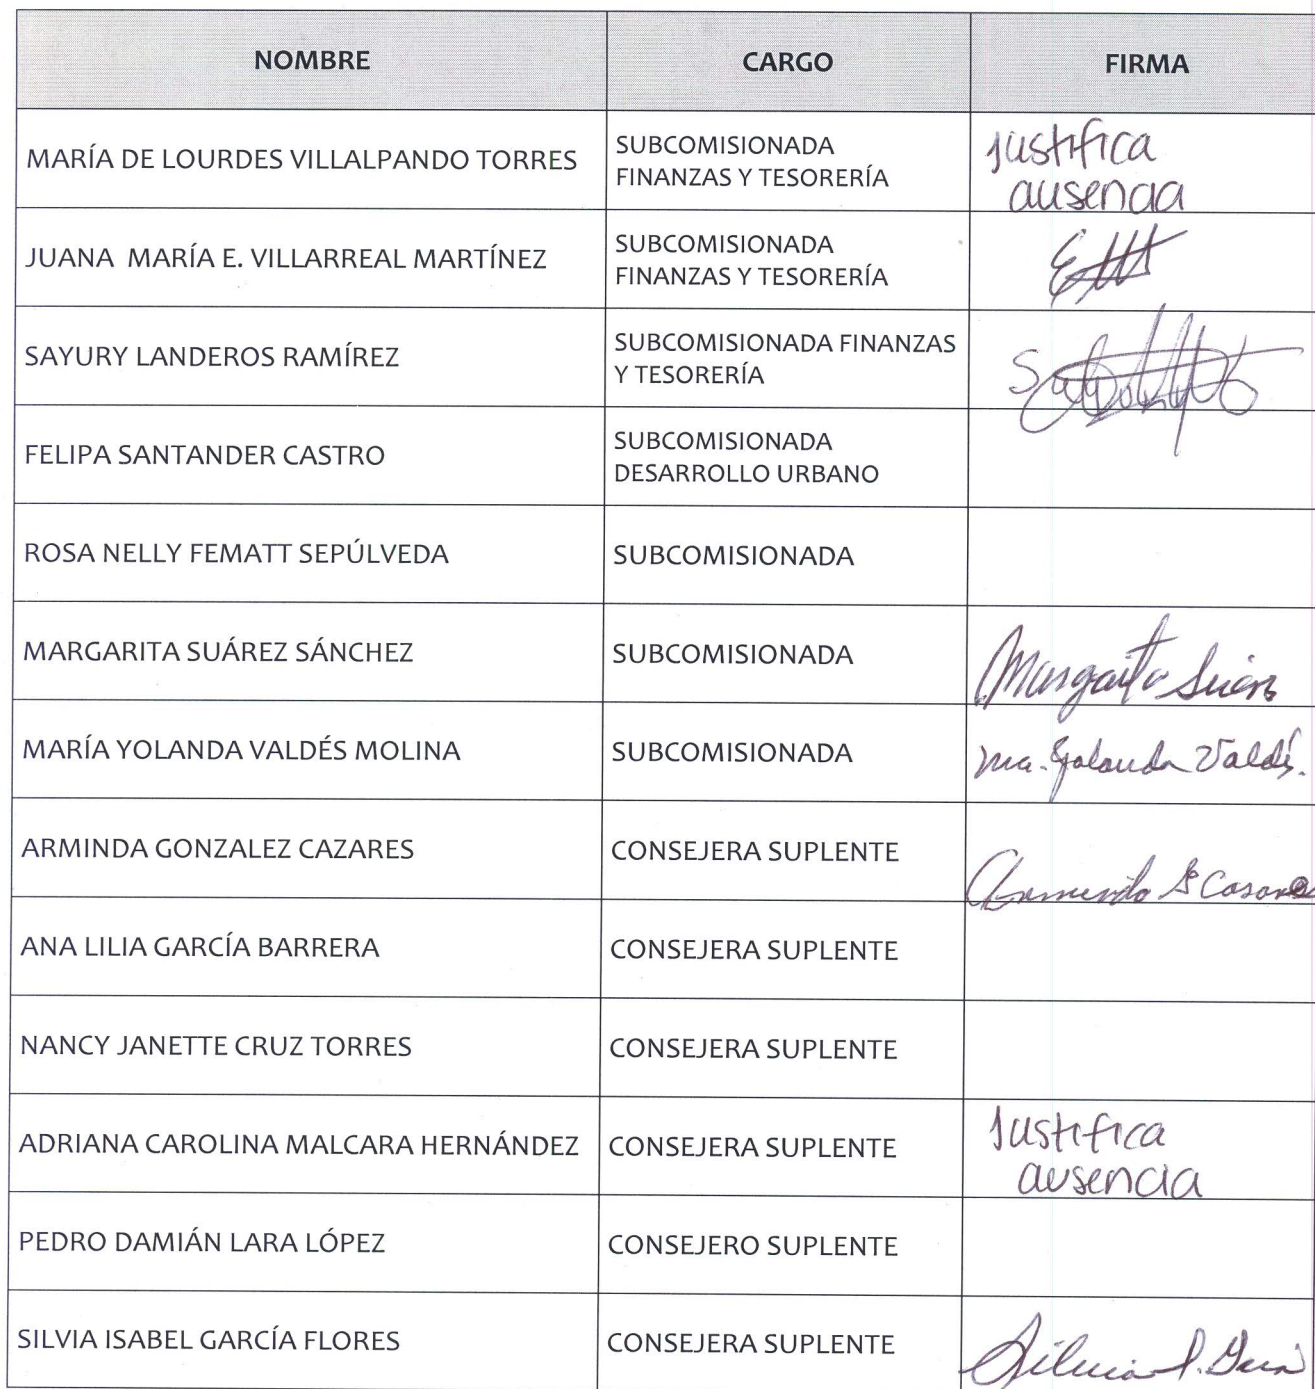 NOMBRE CARGO FIRMA
MARÍA DE LOURDES VILLALPANDO TORRES
SUBCOMISIONADA
FINANZAS Y TESORERÍA
justifica
ausencia
JUANA MARÍA E. VILLARREAL MARTÍNEZ
SUBCOMISIONADA
FINANZAS Y TESORERÍA
SAYURY LANDEROS RAMÍREZ
SUBCOMISIONADA FINANZAS
Y TESORERÍA
FELIPA SANTANDER CASTRO
SUBCOMISIONADA
DESARROLLO URBANO
ROSA NELLY FEMATT SEPÚLVEDA SUBCOMISIONADA
MARGARITA SUÁREZ SÁNCHEZ SUBCOMISIONADA Margarita
MARÍA YOLANDA VALDÉS MOLINA SUBCOMISIONADA Ma. Yolanda Valdés.
ARMINDA GONZALEZ CAZARES CONSEJERA SUPLENTE
ANA LILIA GARCÍA BARRERA CONSEJERA SUPLENTE
NANCY JANETTE CRUZ TORRES CONSEJERA SUPLENTE
ADRIANA CAROLINA MALCARA HERNÁNDEZ CONSEJERA SUPLENTE
Justifica
ausencia
PEDRO DAMIÁN LARA LÓPEZ CONSEJERO SUPLENTE
SILVIA ISABEL GARCÍA FLORES CONSEJERA SUPLENTE Silvia I.